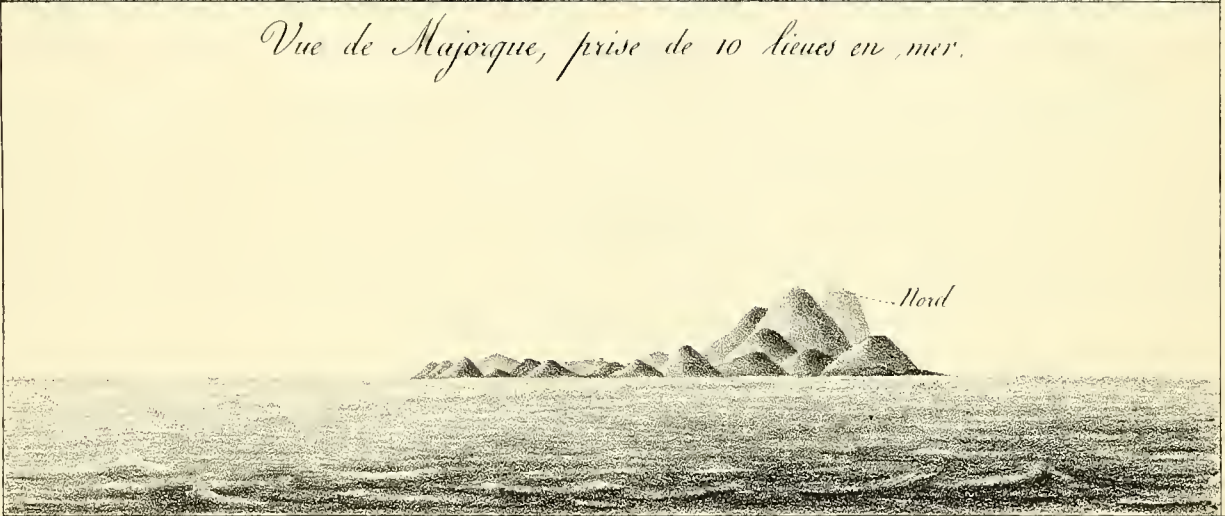 Vue de Majorque, prise de 10 lieues en mer.
Nord